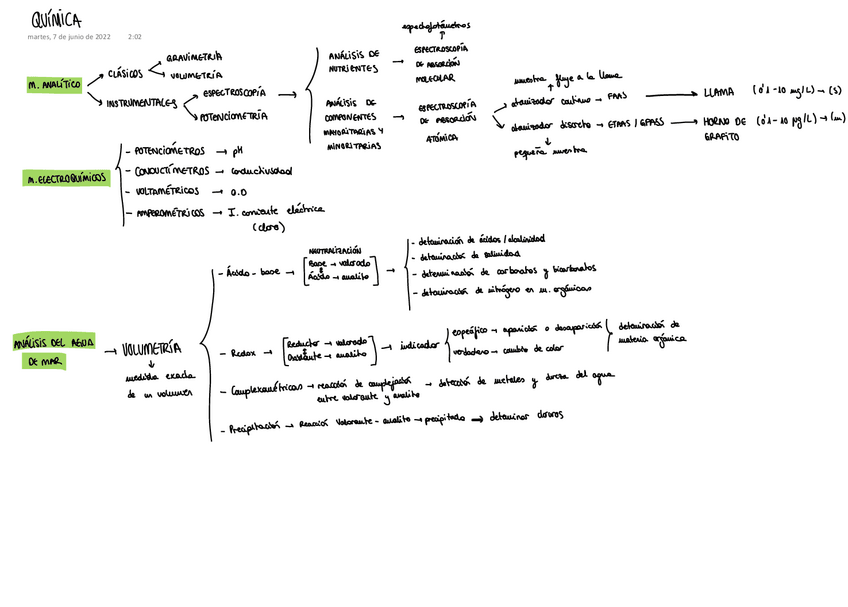 QUÍMICA
martes, 7 de junio de 2022 2:02
M. ANALÍTICO
CLÁSICOS
GRAVIMETRÍA
VOLUMETRÍA
INSTRUMENTALES
ESPECTROSCOPÍA
POTENCIOMETRÍA
ANÁLISIS DE
NUTRIENTES
espectrofotómetros
ESPECTROSCOPÍA
DE ABSORCIÓN
MOLECULAR
ANÁLISIS DE
COMPONENTES
MAYORITARIAS Y
MINORITARIAS
ESPECTROSCOPÍA
DE ABSORCIÓN
ATÓMICA
muestra fluye a la llama
atomizador continuo → FAAS → LLAMA (0'1-10 mg/L) → (s)
atomizador discreto → ETAAS / GFAAS → HORNO DE GRAFITO (0'1-10 µg/L) → (m)
pequeña muestra
M. ELECTROQUÍMICOS
- POTENCIOMÉTROS → pH
- CONDUCTÍMETROS → conductividad
- VOLTAMÉTRICOS → O.D
- AMPEROMÉTRICOS → I. corriente eléctrica
(cloro)
ANÁLISIS DEL AGUA
DE MAR
→ VOLUMETRÍA
medida exacta
de un volumen
- Ácido-base →
NEUTRALIZACIÓN
Base → valorado
Ácido → analito
- determinación de ácidos / alcalinidad
- determinación de salinidad
- determinación de carbonatos y bicarbonatos
- determinación de nitrógeno en m. orgánicas
- Redox →
Reductor → valorado
Oxidante → analito
→ indicador
específico → aparición o desaparición
verdadero → cambio de color
determinación de
materia orgánica
- Complexométricas → reacción de complejación → detección de metales y dureza del agua
entre valorante y analito
- Precipitación → Reacción valorante-analito → precipitado → determinar cloruros